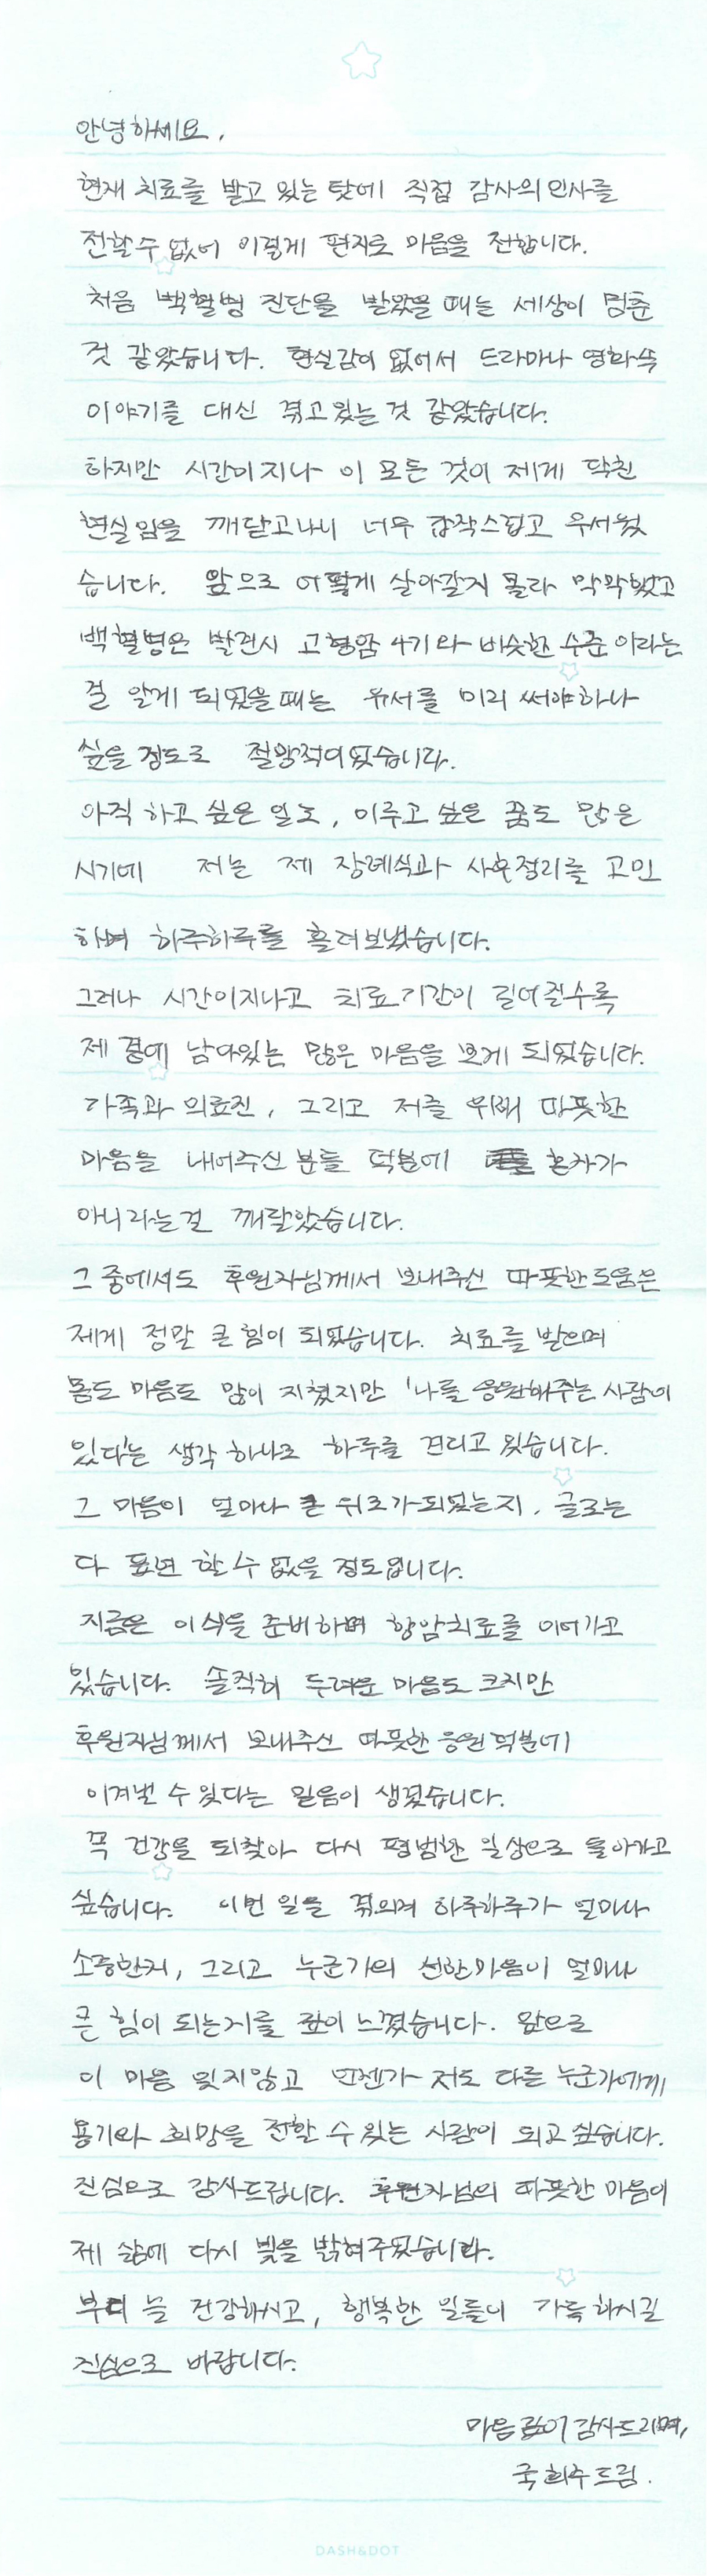 안녕하세요,
현재 치료를 받고 있는 탓에 직접 감사의 인사를
전할 수 없어 이렇게 편지로 마음을 전합니다.
처음 백혈병 진단을 받았을 때는 세상이 멈춘
것 같았습니다. 현실감이 없어서 드라마나 영화 속
이야기를 대신 겪고있는 것 같았습니다.
하지만 시간이 지나 이 모든 것이 제게 닥친
현실임을 깨닫고나니 너무 갑작스럽고 무서웠
습니다. 앞으로 어떻게 살아갈지 몰라 막막했고
백혈병은 발견시 고형암 4기와 비슷한 수준이라는
걸 알게 되었을때는 유서를 미리 써야하나
싶을 정도로 절망적이었습니다.
아직 하고 싶은 일도, 이루고 싶은 꿈도 많은
시기에 저는 제 장례식과 사후정리를 고민
하며 하루하루를 흘려보냈습니다.
그러나 시간이지나고 치료기간이 길어질수록
제 곁에 남아있는 많은 마음을 보게 되었습니다.
가족과 의료진, 그리고 저를 위해 따뜻한
마음을 내어주신 분들 덕분에 혼자가
아니라는걸 깨달았습니다.
그 중에서도 후원자님께서 보내주신 따뜻한 도움은
제게 정말 큰 힘이 되었습니다. 치료를 받으며
몸도 마음도 많이 지쳤지만 '나를 응원해주는 사람이
있다'는 생각 하나로 하루를 견디고 있습니다.
그 마음이 얼마나 큰 위로가되었는지, 글로는
다 표현 할 수 없을 정도입니다.
지금은 이식을 준비하며 항암치료를 이어가고
있습니다. 솔직히 두려운 마음도 크지만
후원자님께서 보내주신 따뜻한 응원 덕분에
이겨낼 수 있다는 믿음이 생겼습니다.
꼭 건강을 되찾아 다시 평범한 일상으로 돌아가고
싶습니다. 이번 일을 겪으며 하루하루가 얼마나
소중한지, 그리고 누군가의 선한마음이 얼마나
큰 힘이 되는지를 깊이 느꼈습니다. 앞으로
이 마음 잊지않고 언젠가 저도 다른 누군가에게
용기와 희망을 전할 수 있는 사람이 되고 싶습니다.
진심으로 감사드립니다. 후원자님의 따뜻한 마음이
제 삶에 다시 빛을 밝혀주었습니다.
부디 늘 건강하시고, 행복한 일들이 가득하시길
진심으로 바랍니다.
마음 깊이 감사드리며,
국희주 드림.
DASH&DOT